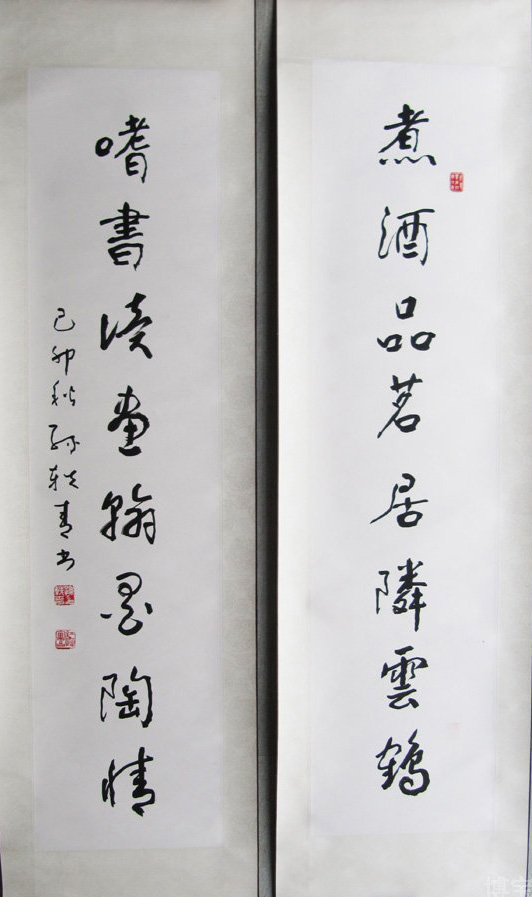 煮酒品茗居隣雲鶴
嗜書读畫翰墨陶情
己卯秋孙轶青书
博宝